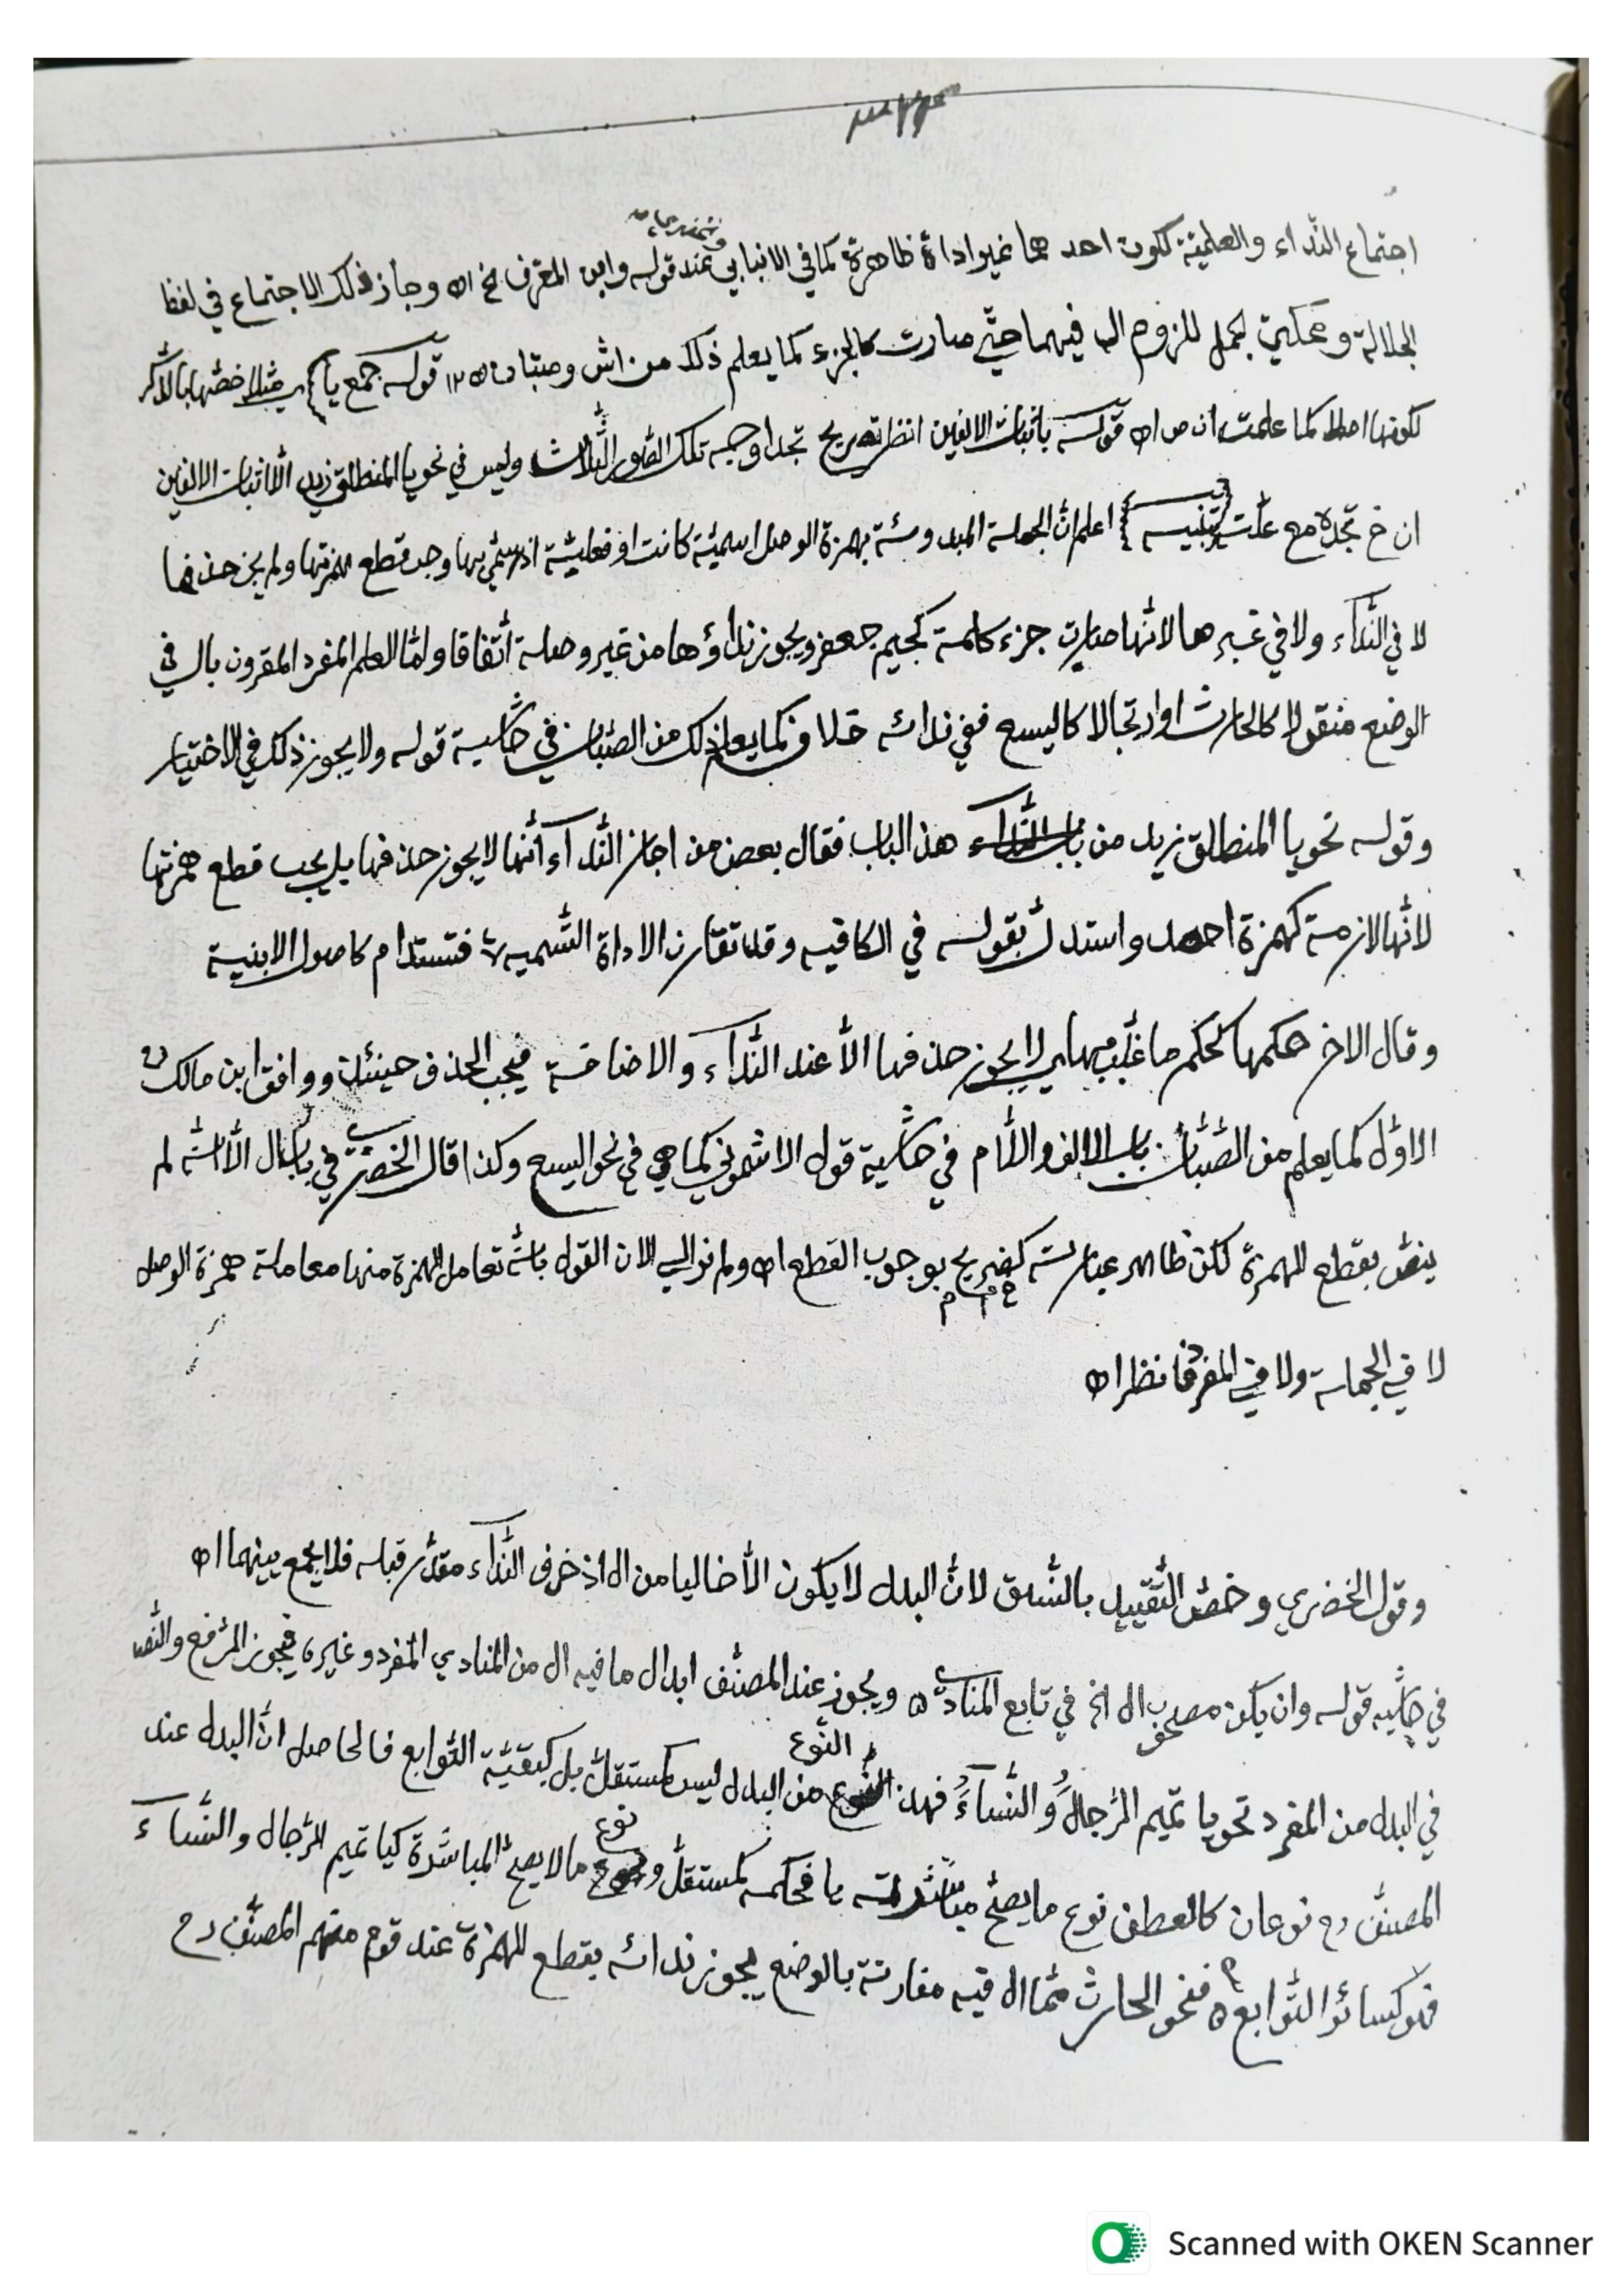 اجتماع النّداء والعلميّة لكون احدهما غير اداة ظاهرة كما في الانبابي عند قوله وابن المعرف الخ اه وجاز ذلك الاجتماع في لفظ
الجلالة ومحكيّ الجمل للزوم ال فيهما حتّى صارت كالجزء كما يعلم ذلك من اش وصبان اه ١٢ قوله جمع يا خصّها بالذّكر
لكونها اصلا كما علمت ان ص اه قوله باثبات الالفين انظر تصريح تجد اوجه تلك الصّور الثّلاث وليس في نحو يا المنطلق زيد الّا اثبات الالفين
ان خ تجده مع علّت تنبيه اعلم انّ الجملة المبدوئة بهمزة الوصل اسميّة كانت او فعليّة اذا سمّي بها وجد قطع همزتها ولم يجز حذفها
لا في النّدآء ولا في غيرها لانّها صارت جزء كلمة كجيم جعفر ويجوز نداؤها من غير وصلة اتّفاقا وامّا العلم المفرد المقرون بال في
الوضع منقولا كالحارث او ارتجالا كاليسع ففي ندائه خلاف كما يعلم ذلك من الصّبّان في حاشية قوله ولا يجوز ذلك في الاختيار
وقوله نحو يا المنطلق زيد من هذا الباب فقال بعض من اجاز النّدآء انّها لا يجوز حذفها بل يجب قطع همزتها
لانّها لازمة كهمزة احمد واستدلّ بقوله في الكافيه وقد تقارن الاداة التّسميه فتستدام كاصول الابنية
وقال الاخر حكمها كحكم ما غلّب بها اي لا يجوز حذفها الّا عند النّدآء والاضافة فيجب الحذف حينئذ ووافق ابن مالك
الاوّل كما يعلم من الصّبّان باب الالف واللّام في حاشية قول الاشموني كما هي في نحو اليسع وكذا قال الخضري في باب ال الّا انّه لم
ينصّ بقطع الهمزة لكن ظاهر عبارته كصريح بوجوب القطع اه ولم نر الى الان القول بانّه تعامل الهمزة منها معاملة همزة الوصل
لا في الجملة ولا في المفرد فانظر اه
وقول الخضري وخصّ التّقييد بالنّسق لانّ البدل لا يكون الّا خاليا من ال اذ حرف النّدآء مقدّر قبله فلا يجمع بينهما اه
في حاشيه قوله وان يكن مصحوب ال الخ في تابع المنادى ه ويجوز عند المصنّف ابدال ما فيه ال من المنادي المفرد وغيره فيجوز الرّفع والنّصب
في البدل من المفرد نحو يا تميم الرّجال والنّساء فهذا النّوع من البدل ليس كمستقلّ بل كبقيّة التّوابع فالحاصل انّ البدل عند
المصنّف رح نوعان كالعطف نوع ما يصحّ مباشرته يا فحكمه كمستقلّ ونوع ما لا يصحّ المباشرة كيا تميم الرّجال والنّساء
فهو كسائر التّوابع ه فنحو الحارث ممّا ال فيه مقارنة بالوضع يجوز ندائه بقطع الهمزة عند قوم منهم المصنّف رح
Scanned with OKEN Scanner